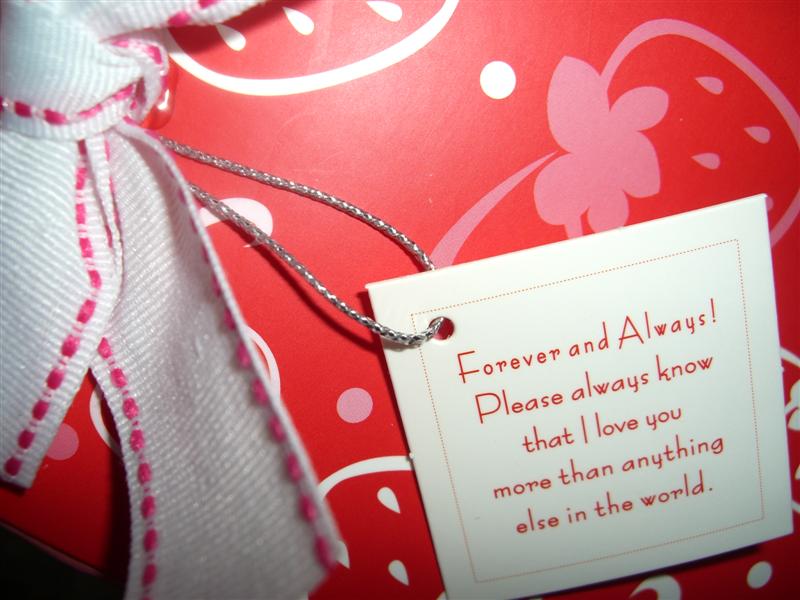 Forever and Always!
Please always know
that I love you
more than anything
else in the world.